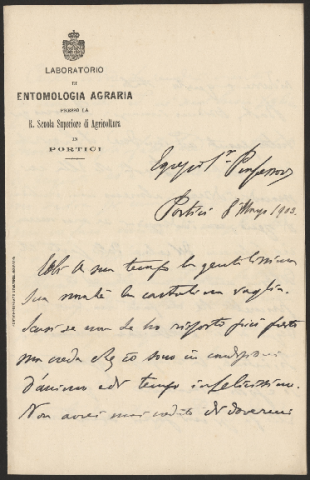 LABORATORIO
DI
ENTOMOLOGIA AGRARIA
PRESSO LA
R. Scuola Superiore di Agricoltura
IN
PORTICI
Egregio Sr. Professore
Portici 8 Maggio 1903.
Ebbi a suo tempo la gentilissima
sua la cartolina vaglia.
Scusi se non le ho risposto più presto
ma creda che io sono in condizioni
d'animo e di tempo infelicissimo.
Non avrei mai creduto di dovermi